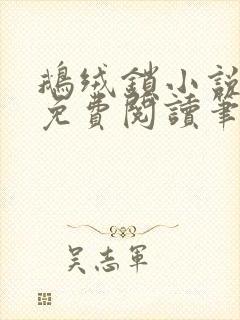 鵝絨鎖小說
免費閱讀筆
吴志軍